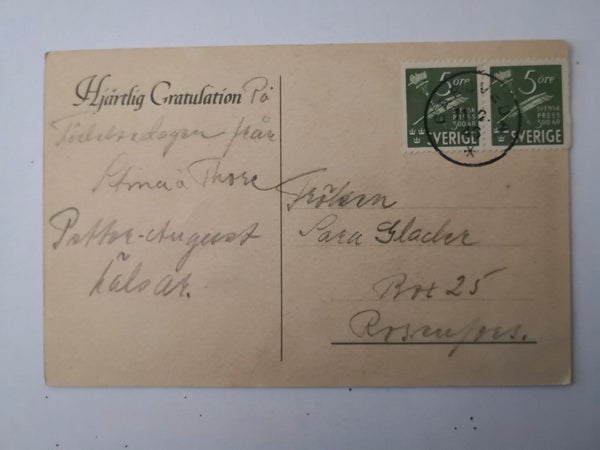 Hjärtlig Gratulation På
Födelsedagen från
Stina o Thore
Petter-August
hälsar.
Fröken
Sara Glader
Box 25
Rosenfors.
5 öre
SVENSK
PRESS
300 ÅR
SVERIGE
5 öre
SVENSK
PRESS
300 ÅR
SVERIGE